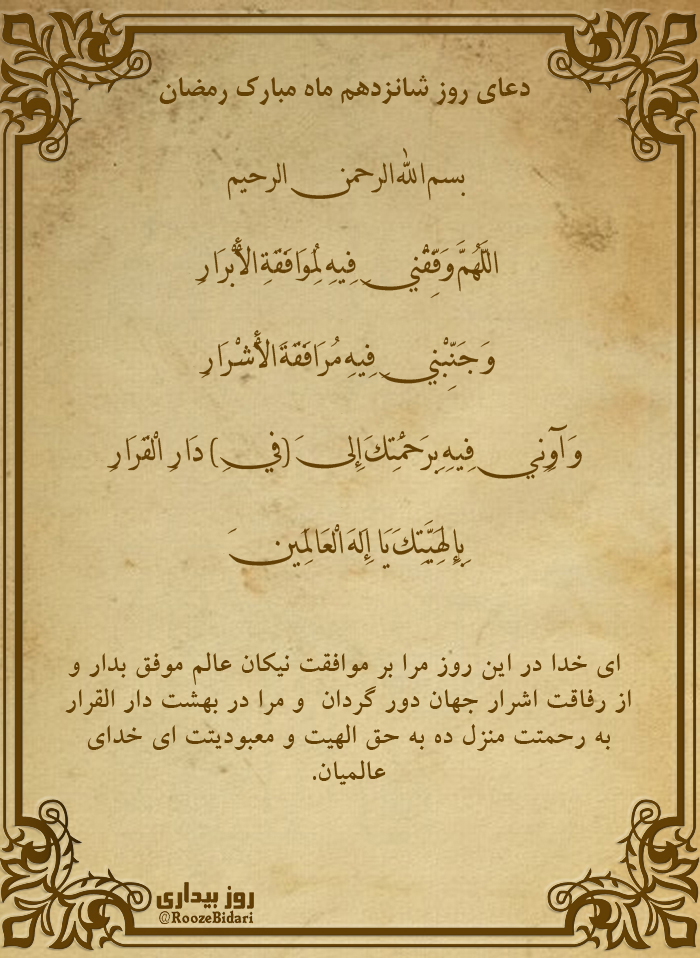 دعای روز شانزدهم ماه مبارک رمضان
بسم الله الرحمن الرحیم
اللَّهُمَّ وَفِّقْنِي فِيهِ لِمُوَافَقَةِ الْأَبْرَارِ
وَ جَنِّبْنِي فِيهِ مُرَافَقَةَ الْأَشْرَارِ
وَ آوِنِي فِيهِ بِرَحْمَتِكَ إِلَى (فِي) دَارِ الْقَرَارِ
بِإِلَهِيَّتِكَ يَا إِلَهَ الْعَالَمِينَ
ای خدا در این روز مرا بر موافقت نیکان عالم موفق بدار و
از رفاقت اشرار جهان دور گردان و مرا در بهشت دار القرار
به رحمتت منزل ده به حق الهیت و معبودیتت ای خدای
عالمیان.
روز بیداری
@RoozeBidari